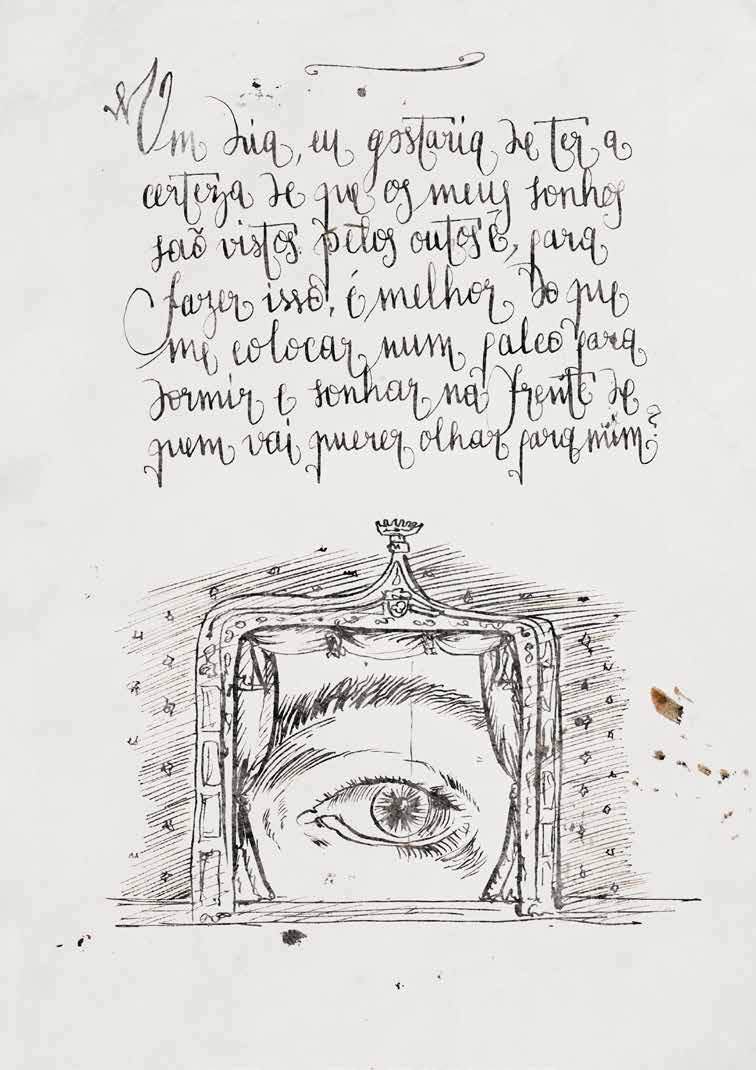 Um dia, eu gostaria de ter a
certeza de que os meus sonhos
são vistos pelos outos e, para
fazer isso, é melhor do que
me colocar num palco para
dormir e sonhar na frente de
quem vai querer olhar para mim?